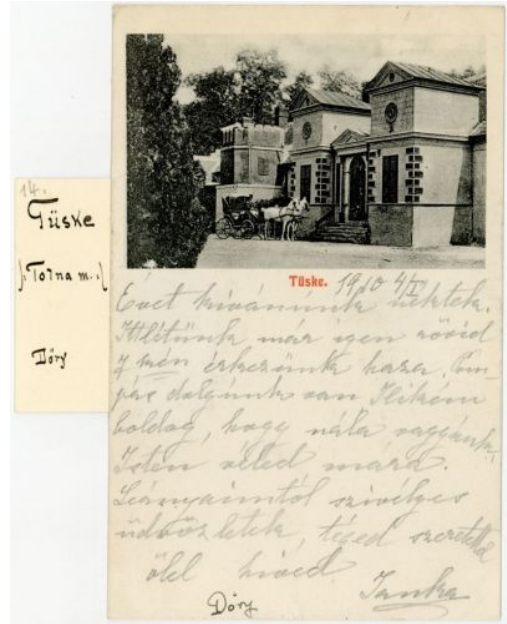 14.
Tüske
(: Torna m. :)
Dőry
Tüske. 1910 4/I
Évet kivánunk nektek.
Ittlétünk már igen rövid
7 kén érkezünk haza.
dolgunk van Ilikém
boldog, hogy nála vagyunk.
Isten véled mára.
Leányaimtól szivélyes
üdvözletek, téged szeretettel
ölel hived
Janka
Dőry